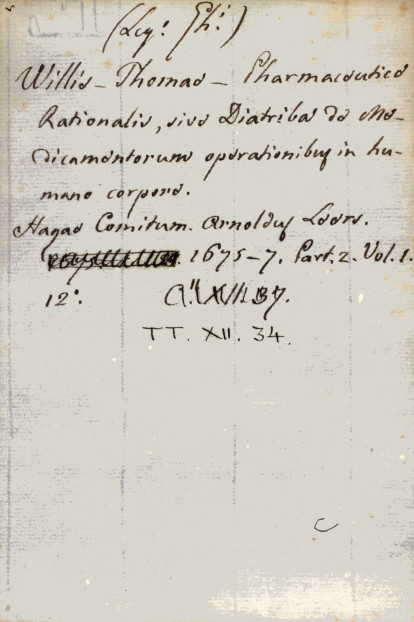 (Leg.: Ph.:)
Willis - Thomae - Pharmaceutice
Rationalis, sive Diatriba de Me-
dicamentorum operationibus in hu-
mano corpore.
Hagae Comitum. Arnoldus Leers.
1675-7. Part. 2. Vol. 1.
12°.
TT. XII. 34.